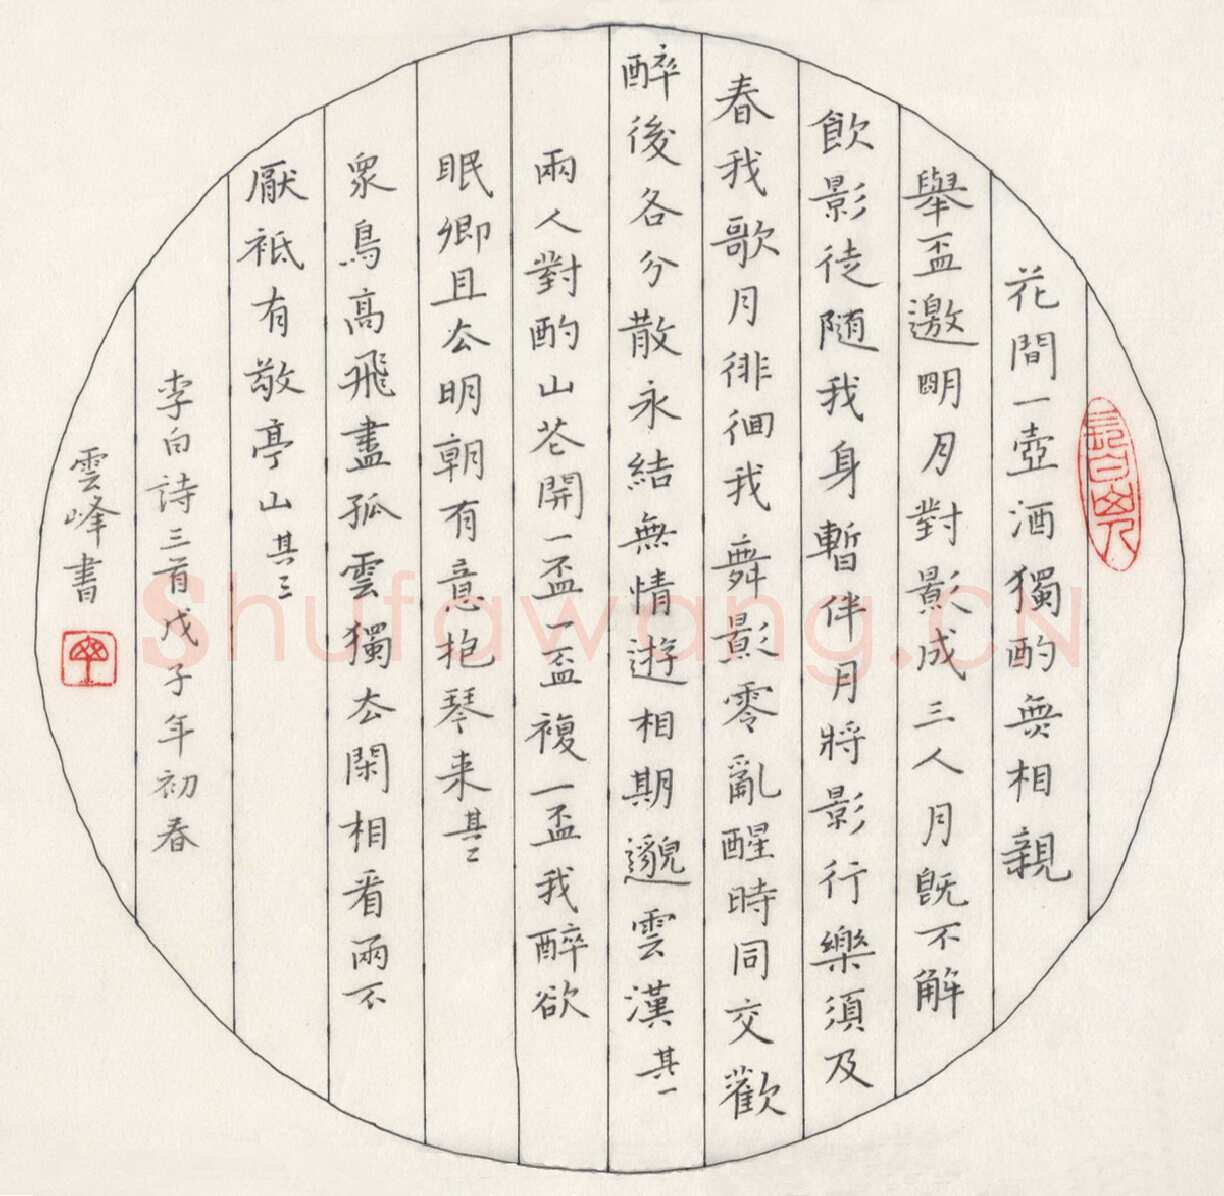 花間一壺酒獨酌無相親
舉盃邀明月對影成三人月既不解
飲影徒隨我身暫伴月將影行樂須及
春我歌月徘徊我舞影零亂醒時同交歡
醉後各分散永結無情遊相期邈雲漢其一
兩人對酌山花開一盃一盃複一盃我醉欲
眠卿且去明朝有意抱琴来其二
眾鳥高飛盡孤雲獨去閑相看兩不
厭袛有敬亭山其三
李白詩三首戊子年初春
雲峰書
Shufawang.CN